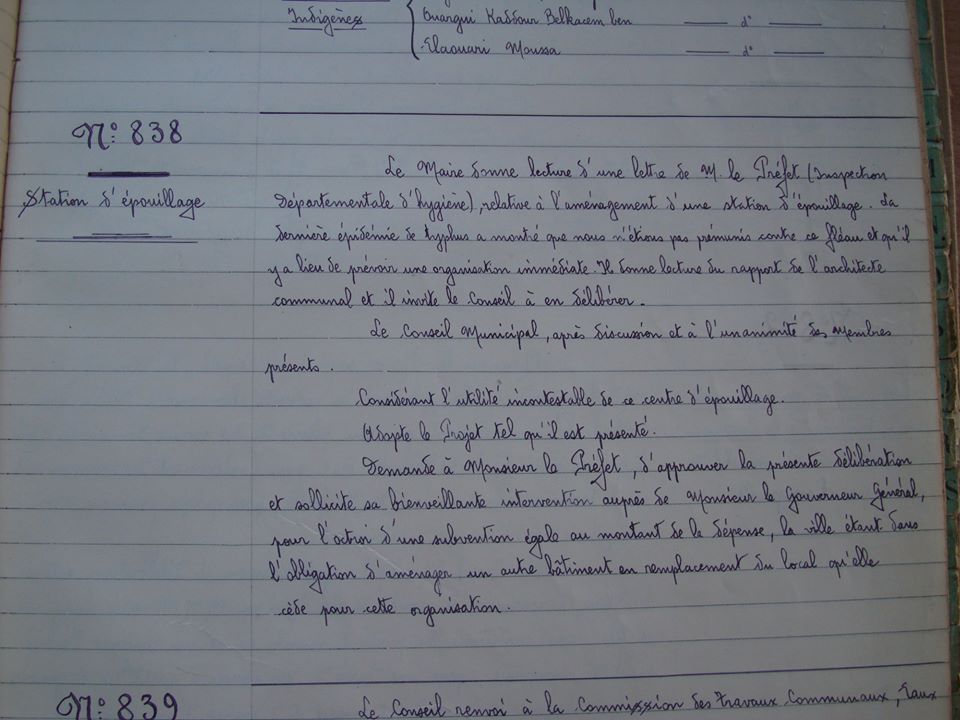 Indigènes
Ouargui Kaddour Belkacem ben d°
Elaouari Moussa d°
N° 838
Station d'épouillage
Le Maire donne lecture d'une lettre de M. le Préfet (Inspection
Départementale d'hygiène), relative à l'aménagement d'une station d'épouillage. La
dernière épidémie de typhus a montré que nous n'étions pas prémunis contre ce fléau et qu'il
y a lieu de prévoir une organisation immédiate. Il donne lecture du rapport de l'architecte
communal et il invite le Conseil à en délibérer.
Le Conseil Municipal, après discussion et à l'unanimité des Membres
présents.
Considérant l'utilité incontestable de ce centre d'épouillage.
Adopte le Projet tel qu'il est présenté.
Demande à Monsieur le Préfet, d'approuver la présente délibération
et sollicite sa bienveillante intervention auprès de Monsieur le Gouverneur Général,
pour l'octroi d'une subvention égale au montant de la dépense, la ville étant dans
l'obligation d'aménager un autre bâtiment en remplacement du local qu'elle
cède pour cette organisation.
N° 839
Le Conseil renvoi à la Commission des Travaux Communaux, Eaux